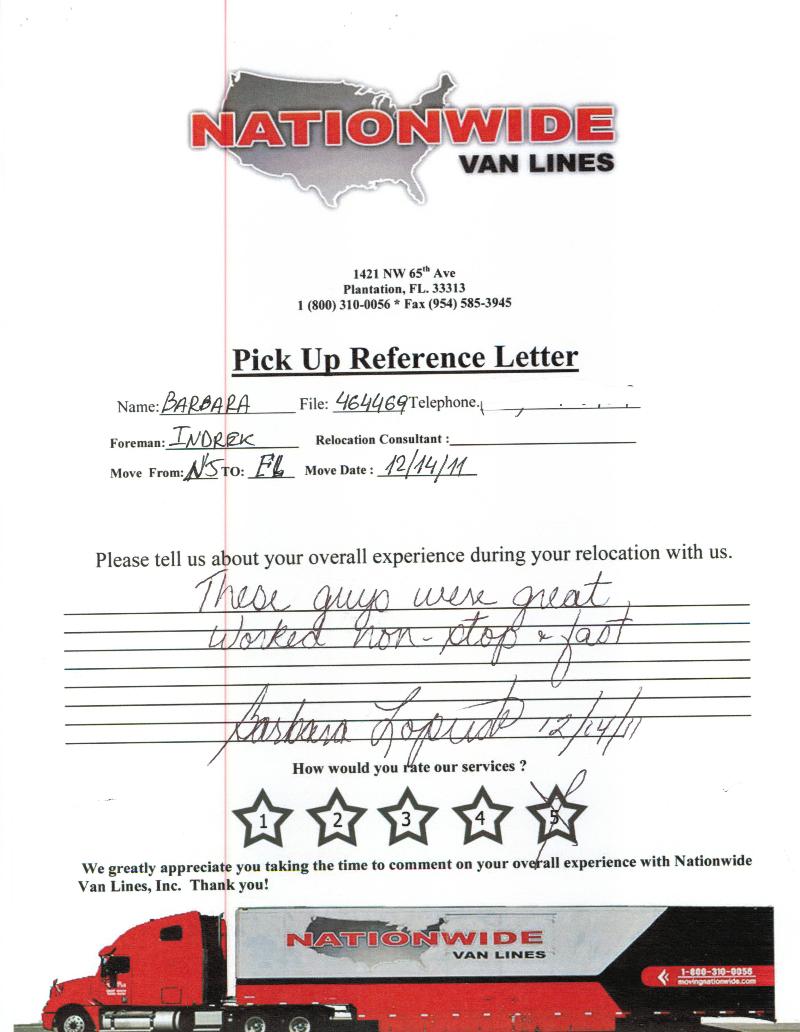 NATIONWIDE
VAN LINES
1421 NW 65th Ave
Plantation, FL. 33313
1 (800) 310-0056 * Fax (954) 585-3945
Pick Up Reference Letter
Name: BARBARA File: 464469 Telephone.
Foreman: INDREK Relocation Consultant :
Move From: NJ TO: FL Move Date : 12/14/11
Please tell us about your overall experience during your relocation with us.
These guys were great,
Worked non-stop & fast
Barbara 12/14/11
How would you rate our services ?
1 2 3 4 5
We greatly appreciate you taking the time to comment on your overall experience with Nationwide
Van Lines, Inc. Thank you!
NATIONWIDE
VAN LINES
1-800-310-0056
movingnationwide.com